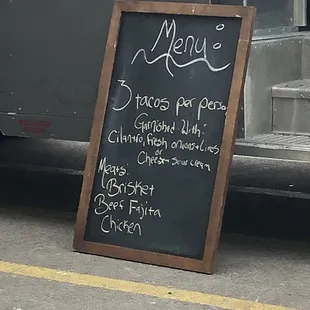 Menu:
3 tacos per person
Garnished With:
Cilantro, fresh onions + Limes
or
Cheese + Sour cream
Meats:
Brisket
Beef Fajita
Chicken